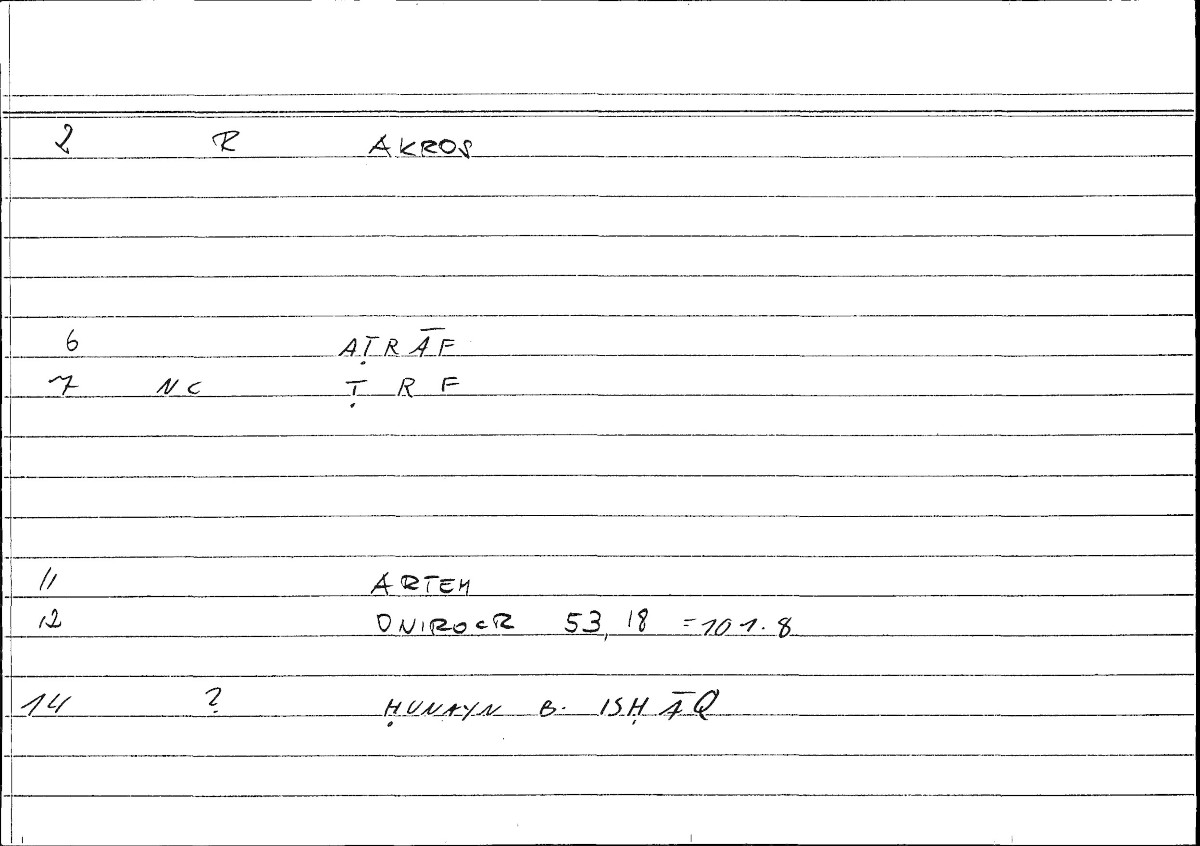 2 R AKROS
6 AṬRĀF
7 NC Ṭ R F
11 ARTEM
12 ONIROCR 53,18 =101.8
14 ? ḤUNAYN B. ISḤĀQ